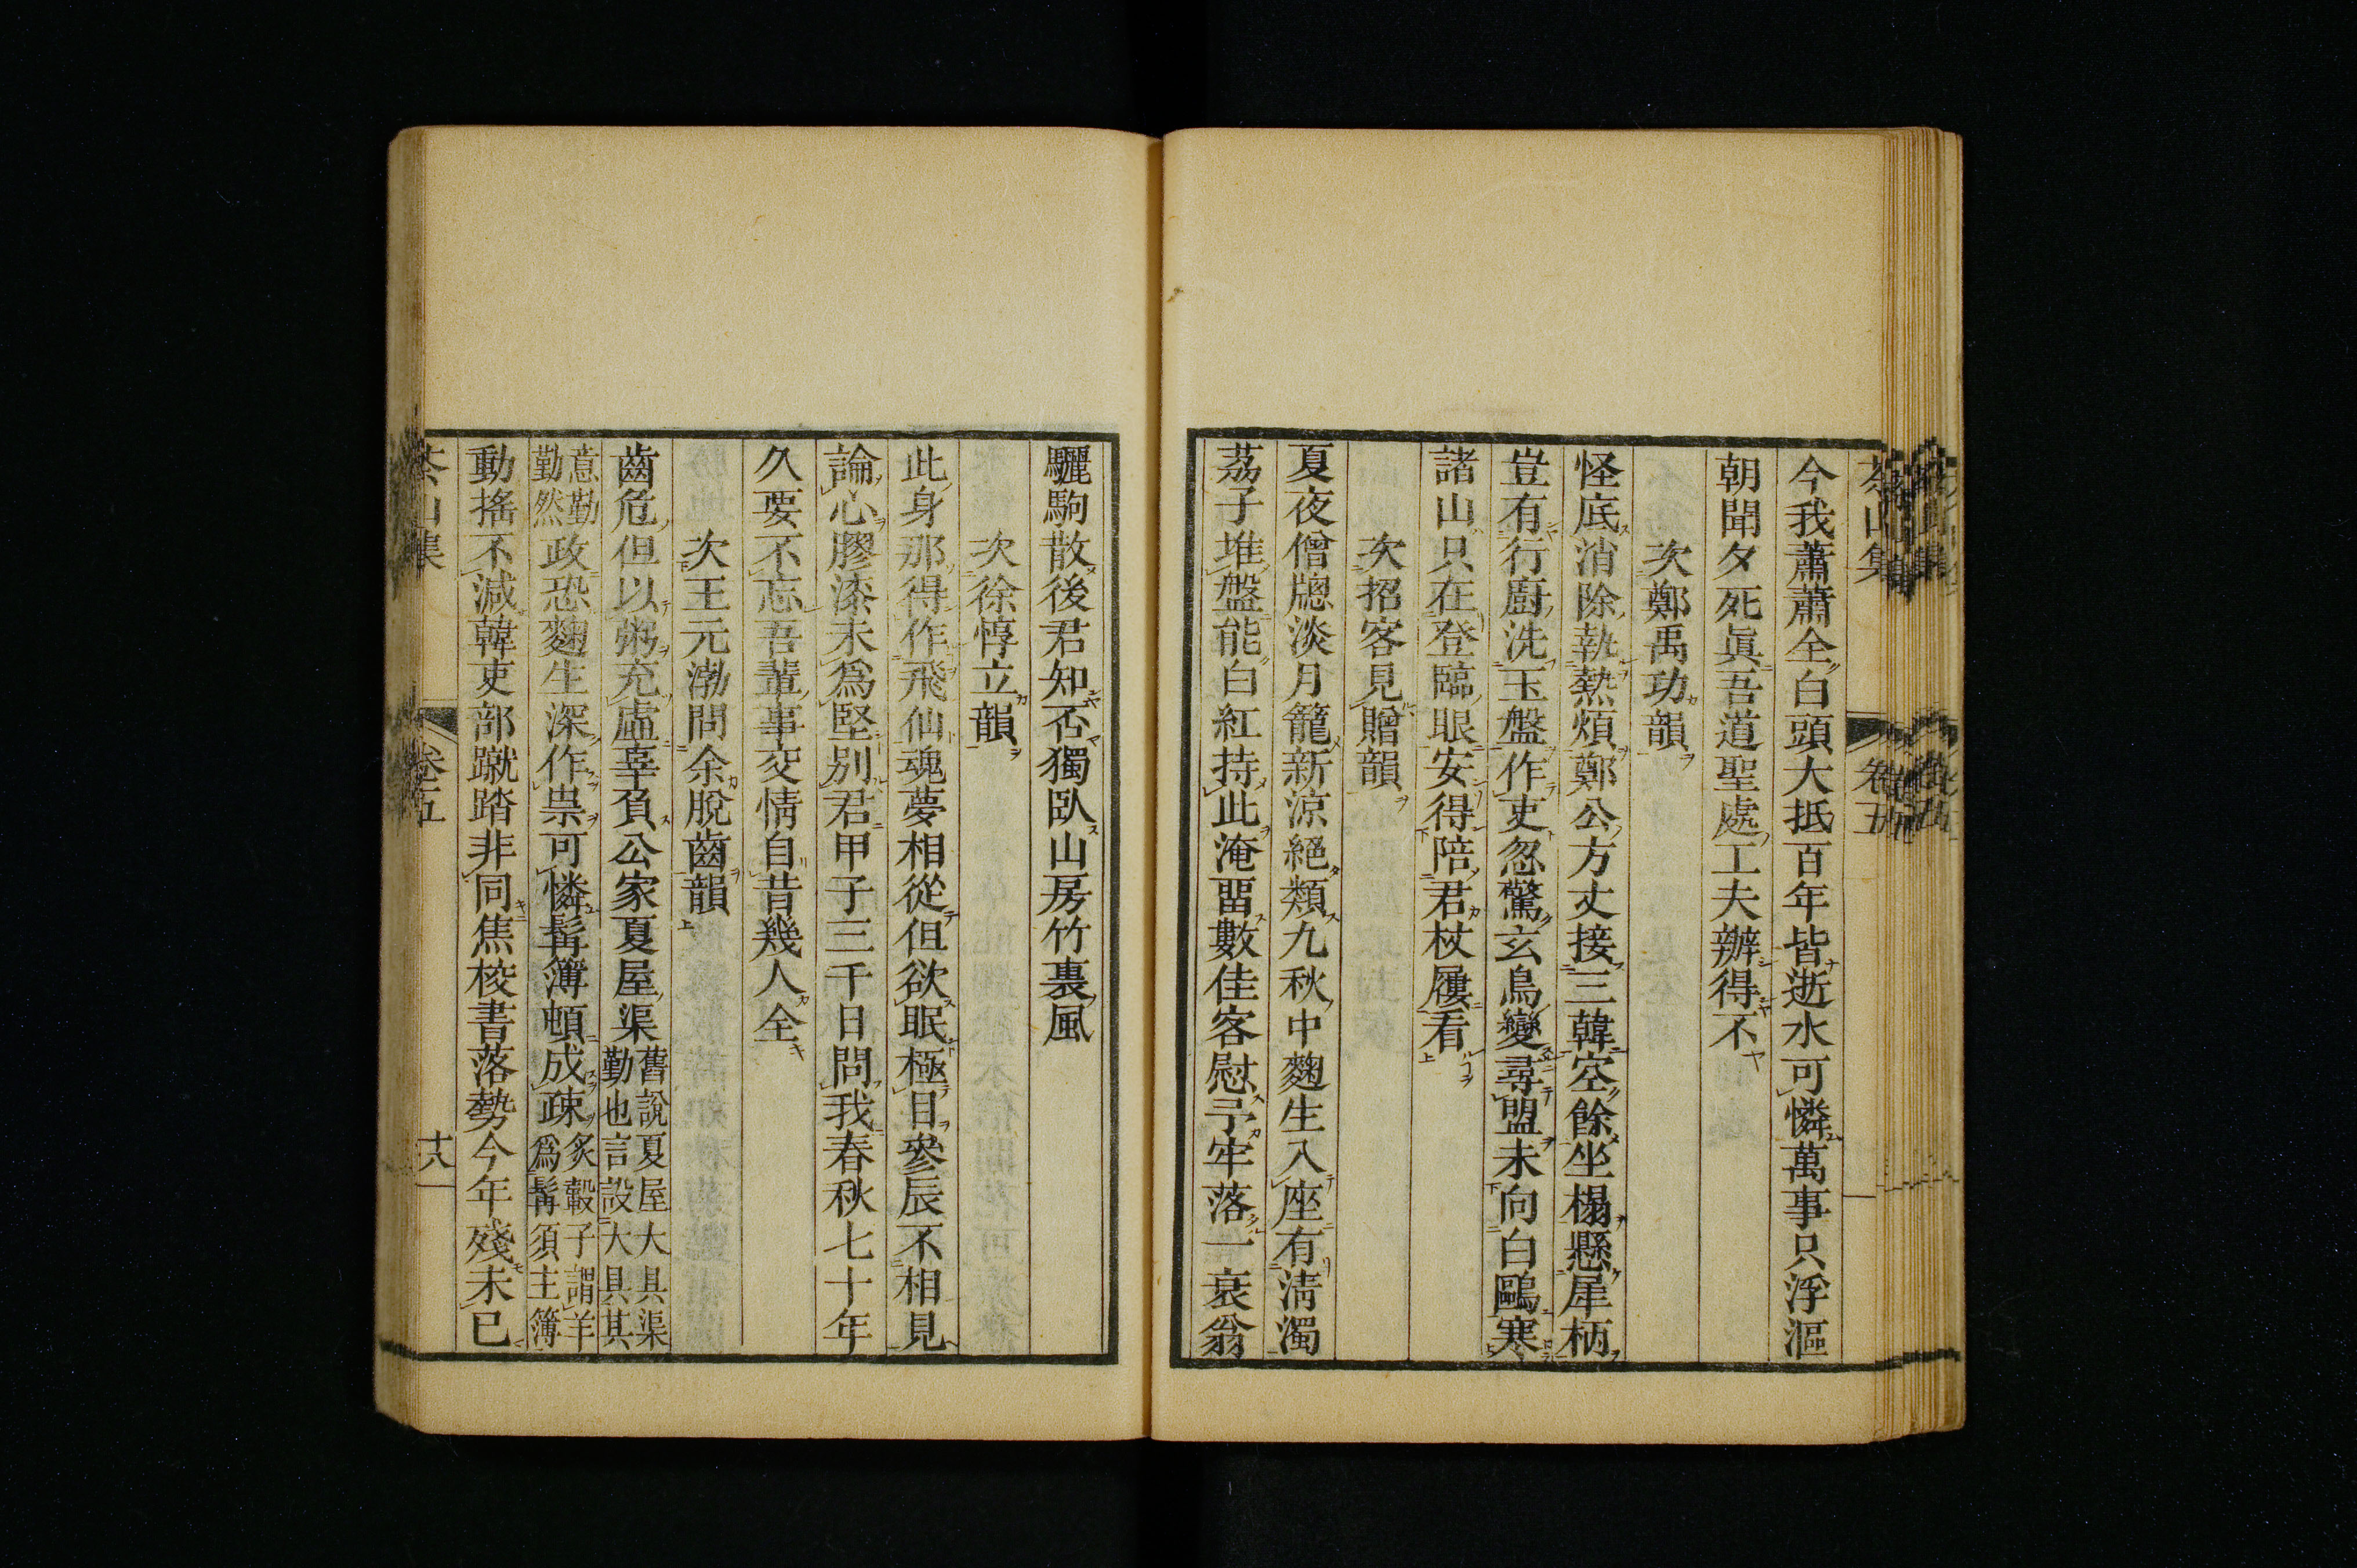 茶山集
卷五
今我蕭蕭全白頭大抵百年皆逝水可憐萬事只浮漚
朝聞夕死眞吾道聖處工夫辦得不
次鄭禹功韻
怪底消除執熱煩鄭公方丈接三韓空餘坐榻懸犀柄
豈有行廚洗玉盤作吏忽驚玄鳥變尋盟未向白鷗寒
諸山只在登臨眼安得陪君杖屨看
次招客見贈韻
夏夜僧牕淡月籠新涼絕類九秋中麴生入座有淸濁
荔子堆盤能白紅持此淹畱數佳客慰予牢落一衰翁
驪駒散後君知否獨臥山房竹裏風
次徐惇立韻
此身那得作飛仙魂夢相從但欲眠極目參辰不相見
論心膠漆未爲堅別君甲子三千日問我春秋七十年
久要不忘吾輩事交情自昔幾人全
次王元渤問余脫齒韻
齒危但以粥充虛辜負公家夏屋渠舊說夏屋大具渠勤也言設大具其
意勤勤然政恐麴生深作祟可憐髯簿頓成疎炙轂子謂羊爲髯須主簿
動搖不減韓吏部蹴踏非同焦校書落勢今年殘未已
茶山集
卷五
十八